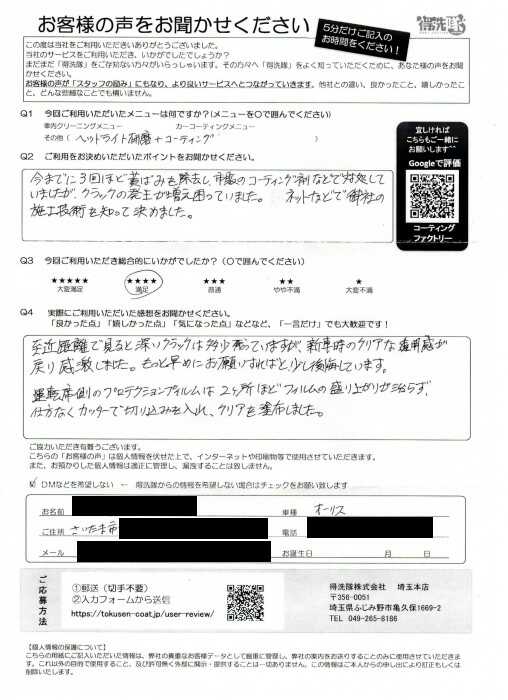 お客様の声をお聞かせください
5分だけご記入の
お時間をください!
得洗隊
この度は当社をご利用いただきありがとうございました。
当社のサービスをご利用いただき、いかがでしたでしょうか?
まだまだ「得洗隊」をご存知ない方々がいらっしゃいます。その方々へ「得洗隊」をよく知っていただくために、あなた様の声をお聞かせください。
お客様の声が「スタッフの励み」にもなり、より良いサービスへとつながっていきます。他社との違い、良かったこと、嬉しかったこと、どんな些細なことでも構いません。
Q1 今回ご利用いただいたメニューは何ですか?(メニューを〇で囲んでください)
車内クリーニングメニュー カーコーティングメニュー
その他( ヘッドライト研磨+コーティング )
Q2 ご利用をお決めいただいたポイントをお聞かせください。
今までに3回ほど黄ばみを除去し、市販のコーティング剤などで対処して
いましたが、クラックの発生が増え困っていました。 ネットなどで御社の
施工技術を知って決めました。
宜しければ
こちらもご一緒に
お願いします^^
Googleで評価
コーティング
ファクトリー
Q3 今回ご利用いただき総合的にいかがでしたか?(〇で囲んでください)
★★★★★ ★★★★ ★★★ ★★ ★
大変満足 満足 普通 やや不満 大変不満
Q4 実際にご利用いただいた感想をお聞かせください。
「良かった点」「嬉しかった点」「気になった点」などなど、「一言だけ」でも大歓迎です!
至近距離で見ると深いクラックは多少残っていますが、新車時のクリアな透明感が
戻り感激しました。もっと早めにお願いすればと少し後悔しています。
運転席側のプロテクションフィルムは2ヶ所ほどフィルムの盛り上がりが治らず、
仕方なくカッターで切り込みを入れ、クリアを塗布しました。
ご協力いただき有難うございます。
こちらの「お客様の声」は個人情報を伏せた上で、インターネットや印刷物等で使用させていただきます。
また、お預かりした個人情報は適正に管理し、漏洩することは致しません。
DMなどを希望しない ← 得洗隊からの情報を希望しない場合はチェックをお願い致します
お名前 車種 オーリス
ご住所 さいたま市 電話
メール お誕生日 年 月 日
ご応募方法
①郵送(切手不要)
②入力フォームから送信
https://tokusen-coat.jp/user-review/
得洗隊株式会社 埼玉本店
〒356-0051
埼玉県ふじみ野市亀久保1669-2
TEL 049-265-8186
【個人情報の保護について】
こちらの用紙にご記入いただいた情報は、弊社の貴重なお客様データとして厳重に管理し、弊社の案内をお送りすることのみに使用させていただきます。これ以外の目的で使用すること、及び許可無く外部に開示・提供することは一切ありません。この情報はご本人からの申し出により訂正もしくは削除いたします。